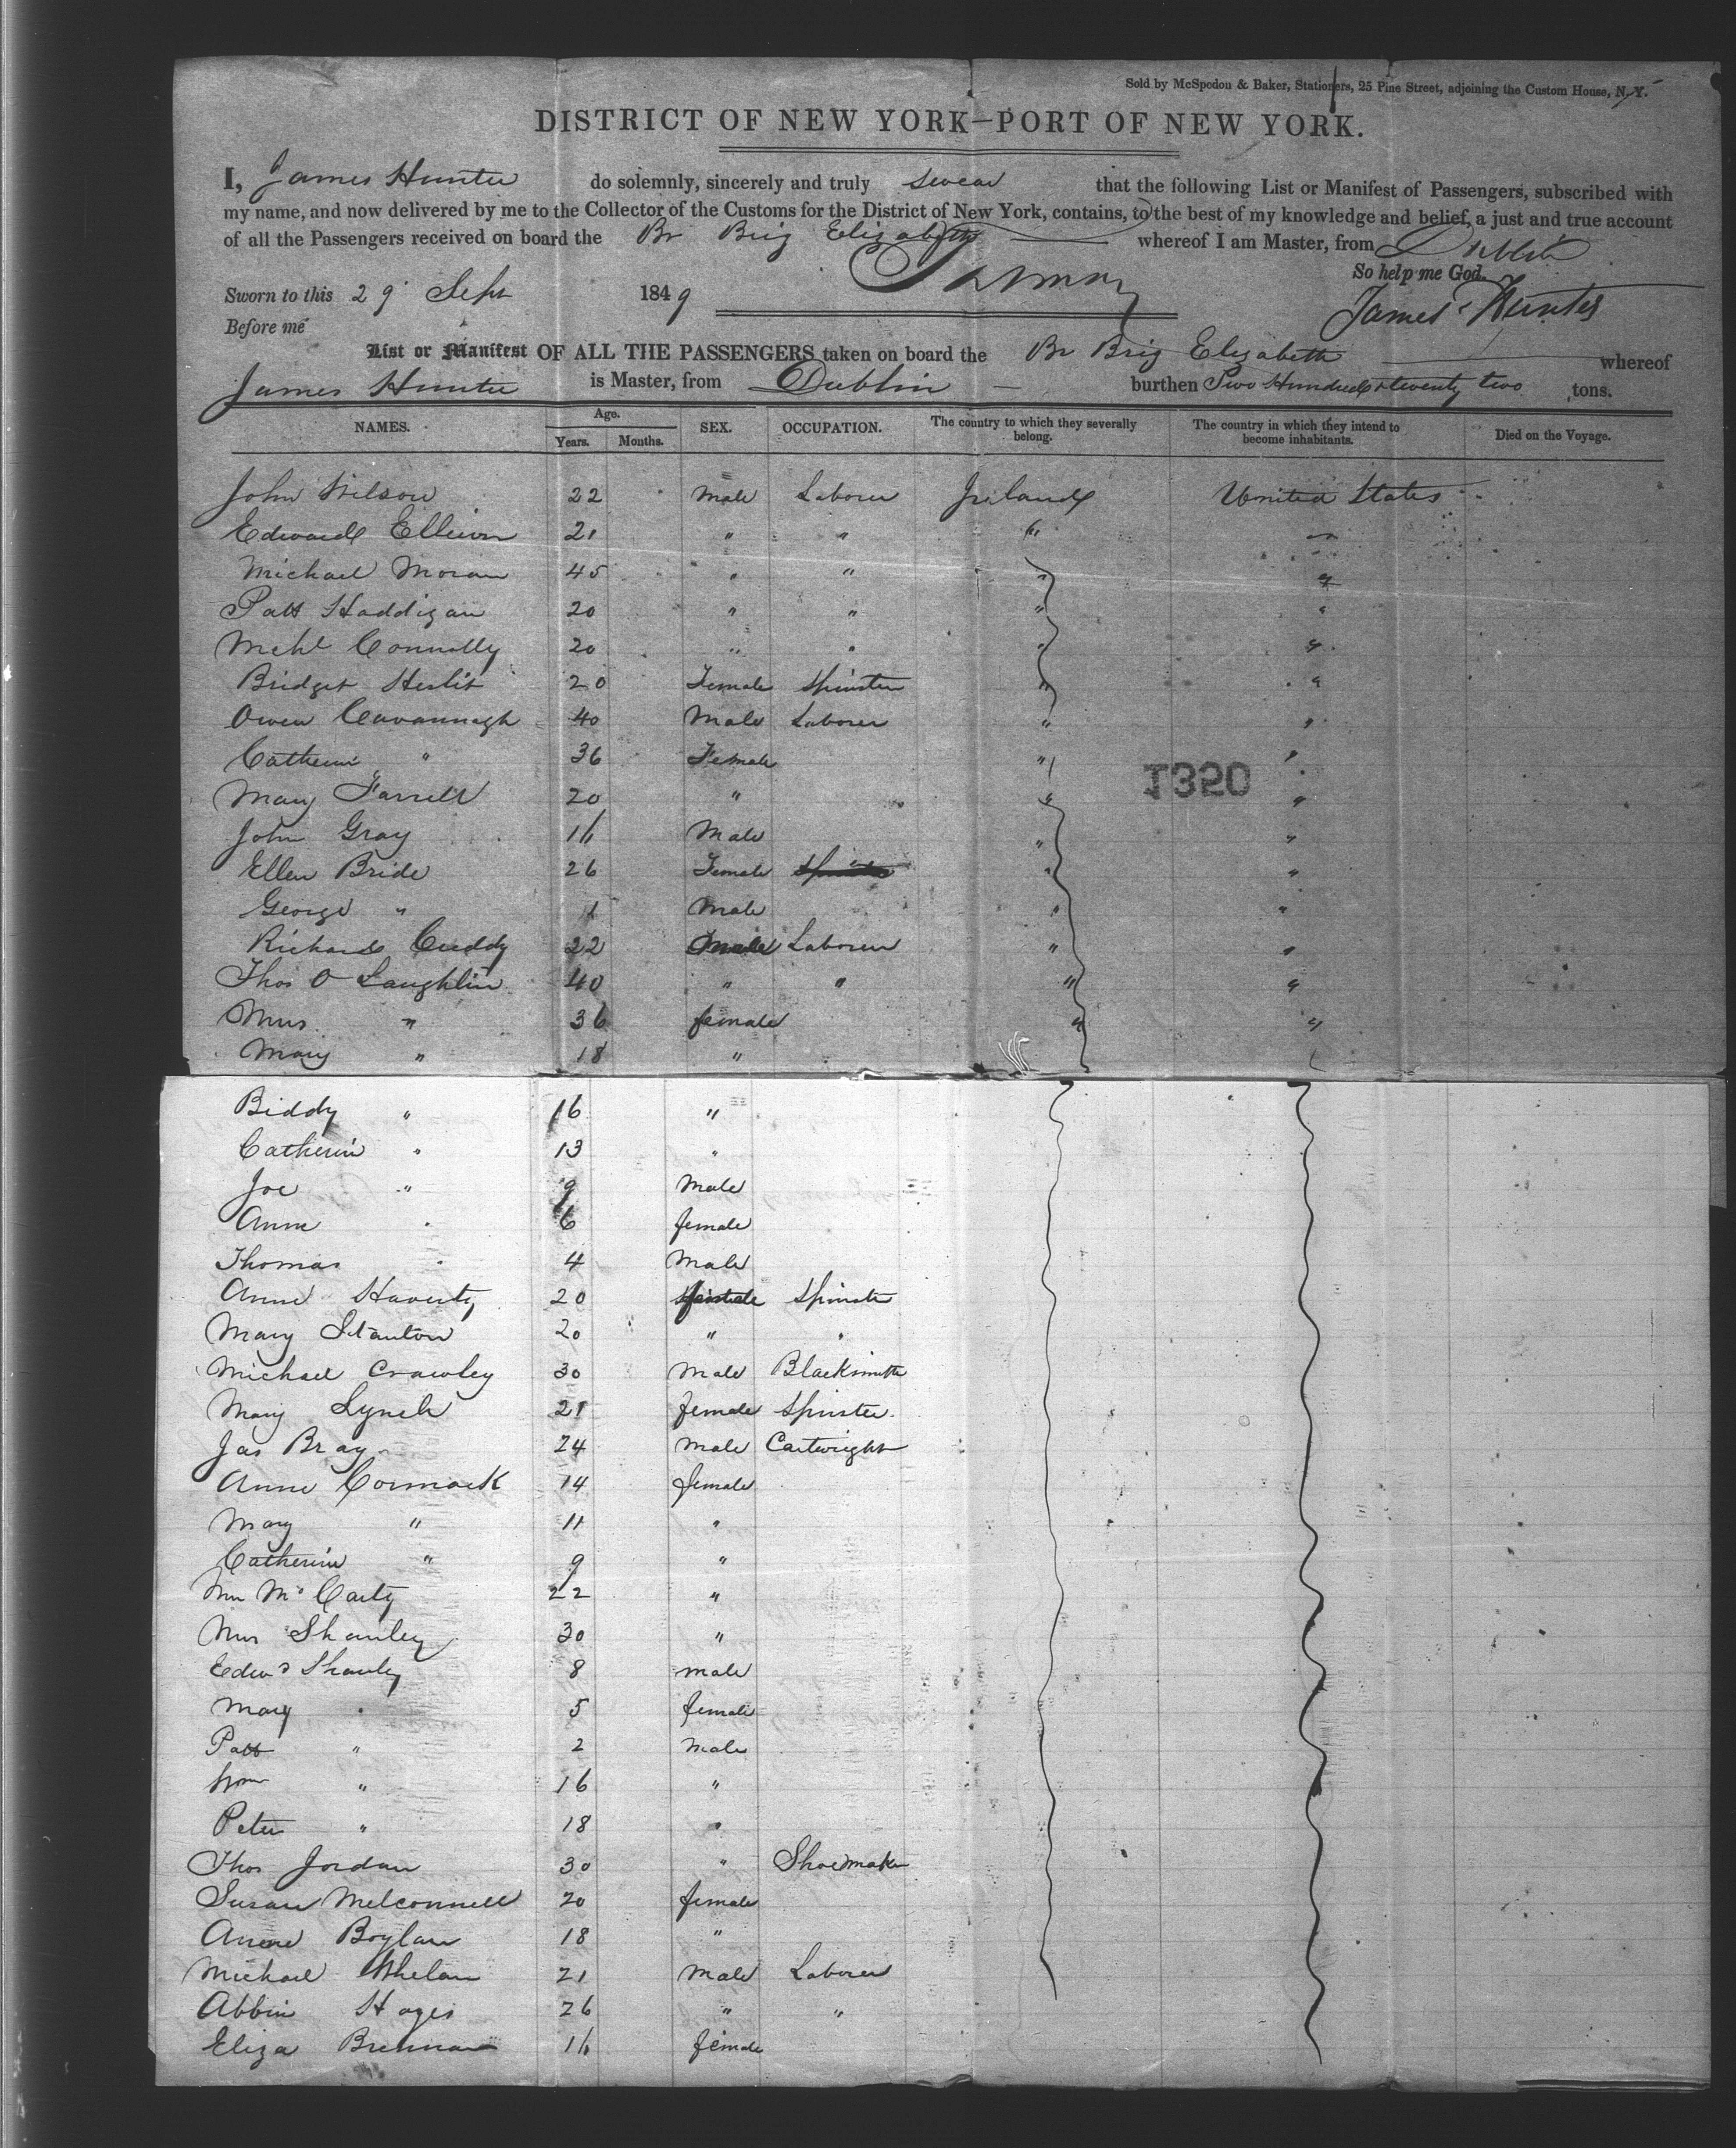 Sold by McSpedon & Baker, Stationers, 25 Pine Street, adjoining the Custom House, N. Y.
DISTRICT OF NEW YORK—PORT OF NEW YORK.
I, James Hunter do solemnly, sincerely and truly swear that the following List or Manifest of Passengers, subscribed with
my name, and now delivered by me to the Collector of the Customs for the District of New York, contains, to the best of my knowledge and belief, a just and true account
of all the Passengers received on board the Br Brig Elizabeth whereof I am Master, from Dublin
So help me God.
Sworn to this 29 Sept 1849 James Hunter
Before me
List or Manifest OF ALL THE PASSENGERS taken on board the Br Brig Elizabeth whereof
James Hunter is Master, from Dublin burthen Two Hundred & twenty two tons.
NAMES. Age. Years. Months. SEX. OCCUPATION. The country to which they severally belong. The country in which they intend to become inhabitants. Died on the Voyage.
John Wilson 22 Male Laborer Ireland United States
Edward 21 " " " "
Michael Moran 45 " " " "
Patt Haddigan 20 " " " "
Mchl Connolly 20 " " " "
Bridget 20 Female Spinster " "
Owen Cavannagh 40 Male Laborer " "
Catherin " 36 Female " "
1320
Mary Farrell 20 " " "
John Gray 16 Male " "
Ellen Bride 26 Female Spinster " "
George " 1 Male " "
Richard Cuddy 22 Male Laborer " "
Thos O Laughlin 40 " " " "
Mrs " 36 female " "
Mary " 18 "
Biddy " 16 "
Catherin " 13 "
Joe " 9 Male
Anne " 6 female
Thomas " 4 Male
Anne Haverty 20 female Spinster
Mary Stanton 20 " "
Michael Crawley 30 Male Blacksmith
Mary Lynch 21 female Spinster
Jas Bray 24 Male Cartwright
Anne Cormack 14 female
Mary " 11 "
Catherin " 9 "
Mc Carty 22 "
Mrs Shanley 30 "
Edwd Shanley 8 male
Mary " 5 female
Patt " 2 Male
Wm " 16 "
Peter " 18 "
Thos Jordan 30 " Shoemaker
Susan Melconnell 20 female
Anne Boylan 18 "
Michael Whelan 21 Male Laborer
Hayes 26 " "
Eliza Brennan 16 female